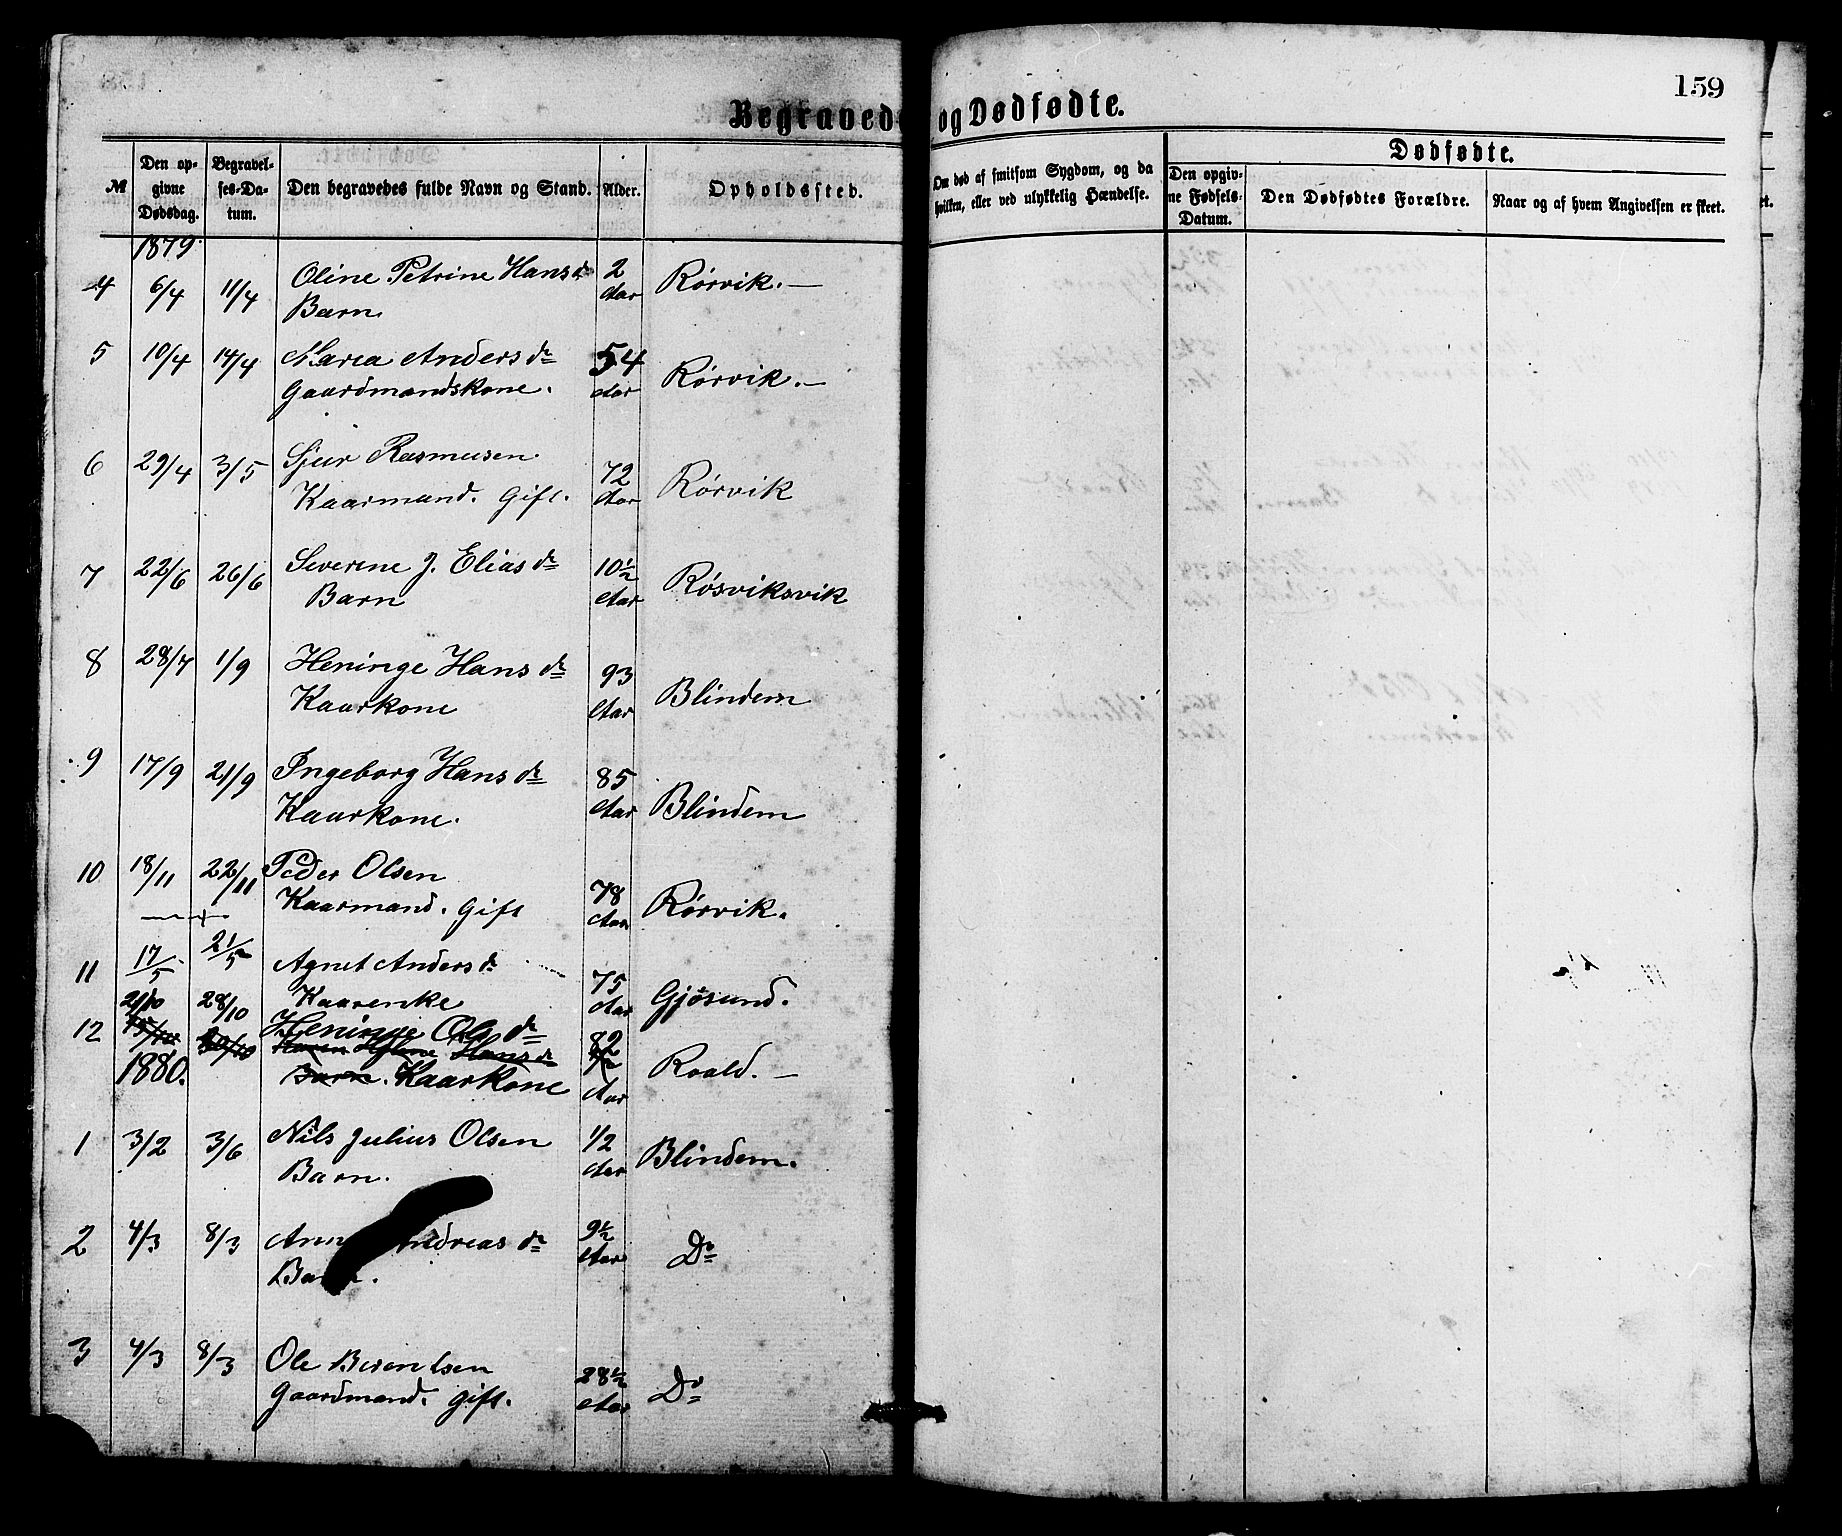 159
Begravede og Dødfødte.
№ Den opgivne Dødsdag. Begravelses-Datum. Den begravedes fulde Navn og Stand. Alder. Opholdssted. Om død af smitsom Sygdom, og da hvilken, eller ved ulykkelig Hændelse. Dødfødte.
Den opgivne Fødsels-Datum. Den Dødfødtes Forældre. Naar og af hvem Angivelsen er skeet.
1879.
4 6/4 11/4 Oline Petrine Hansdr 2 Aar Rørvik. —
Barn
5 10/4 14/4 Maria Andersdr 54 Aar Rørvik. —
Gaardmandskone.
6 29/4 3/5 Sjur Rasmusen 72 Aar Rørvik
Kaarmand. Gift.
7 22/6 26/6 Severine J. Eliasdr 10½ Aar Røsviksvik
Barn
8 28/7 1/9 Heninge Hansdr 93 Aar Blindem
Kaarkone
9 17/9 21/9 Ingeborg Hansdr 85 Aar Blindem
Kaarkone.
10 18/11 22/11 Peder Olsen 78 Aar Rørvik.
Kaarmand. Gift
11 17/5 21/5 Agnet Andersdr 75 Aar Gjøsund.
Kaarenke
12 21/10 28/10 Heninge Olsdr 82 Aar Roald. —
Karen Hansdr
Barn. Kaarkone
1880.
1 3/2 3/6 Nils Julius Olsen 1/2 Aar Blindem.
Barn.
2 4/3 8/3 Andreasdr 9½ Aar Do
3 4/3 8/3 Ole Berentsen 28½ Aar Do
Gaardmand. gift.